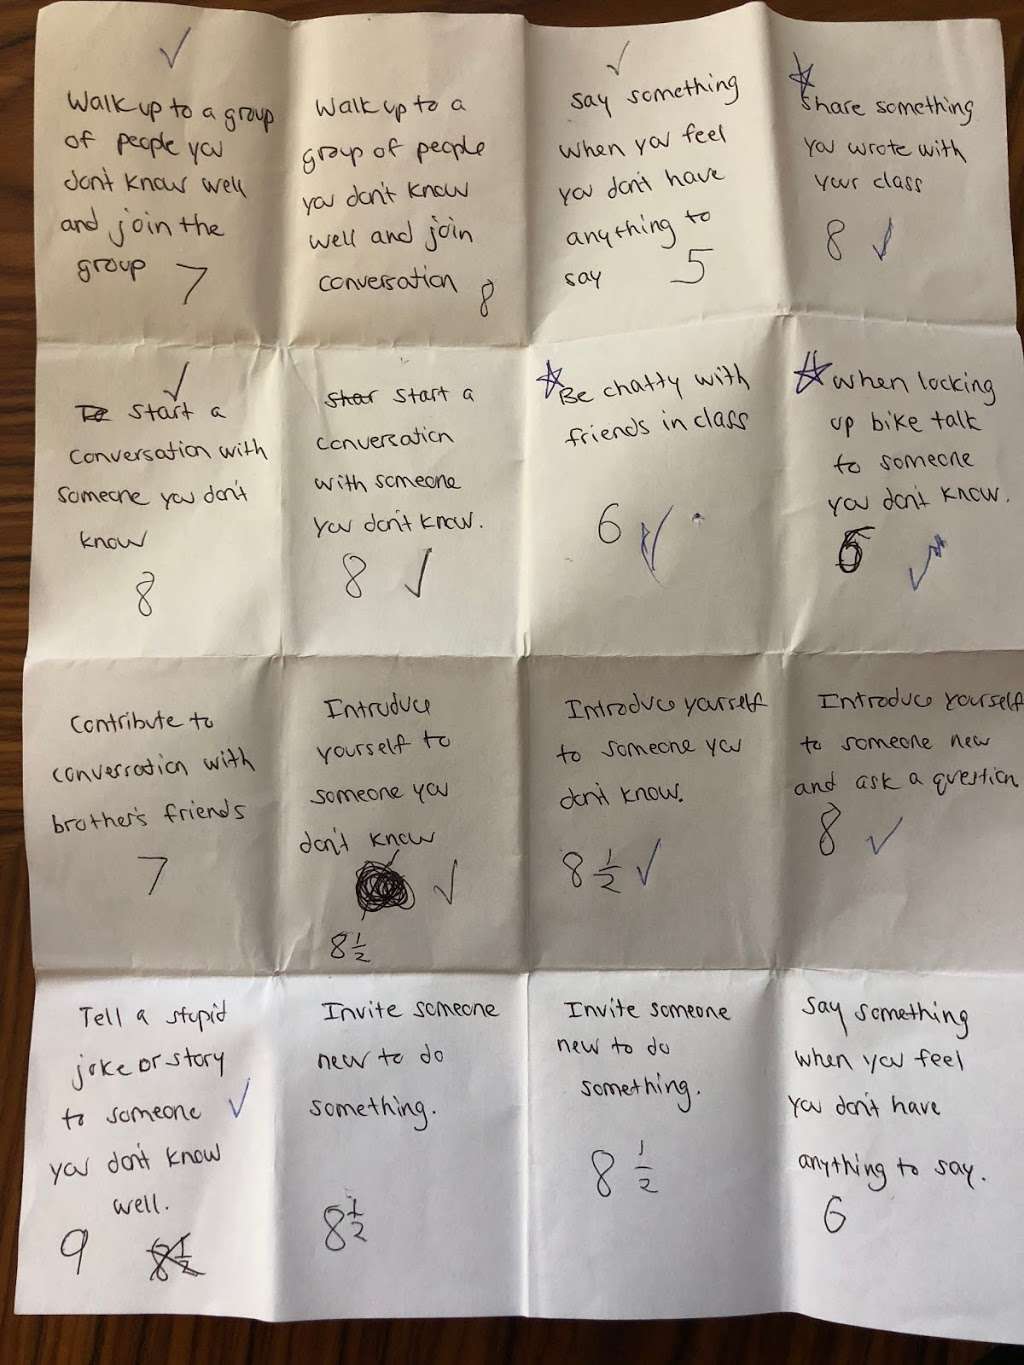 Walk up to a group
of people you
don't know well
and join the
group 7
Walk up to a
group of people
you don't know
well and join
conversation 8
Say something
when you feel
you don't have
anything to
say 5
Share something
you wrote with
your class
8
To start a
conversation with
someone you don't
know
8
Star start a
conversation
with someone
you don't know.
8
Be chatty with
friends in class
6
When locking
up bike talk
to someone
you don't know.
Contribute to
conversation with
brother's friends
7
Introduce
yourself to
someone you
don't know
8 1/2
Introduce yourself
to someone you
don't know.
8 1/2
Introduce yourself
to someone new
and ask a question
8
Tell a stupid
joke or story
to someone
you don't know
well.
9 8 1/2
Invite someone
new to do
something.
8 1/2
Invite someone
new to do
something.
8 1/2
Say something
when you feel
you don't have
anything to say.
6